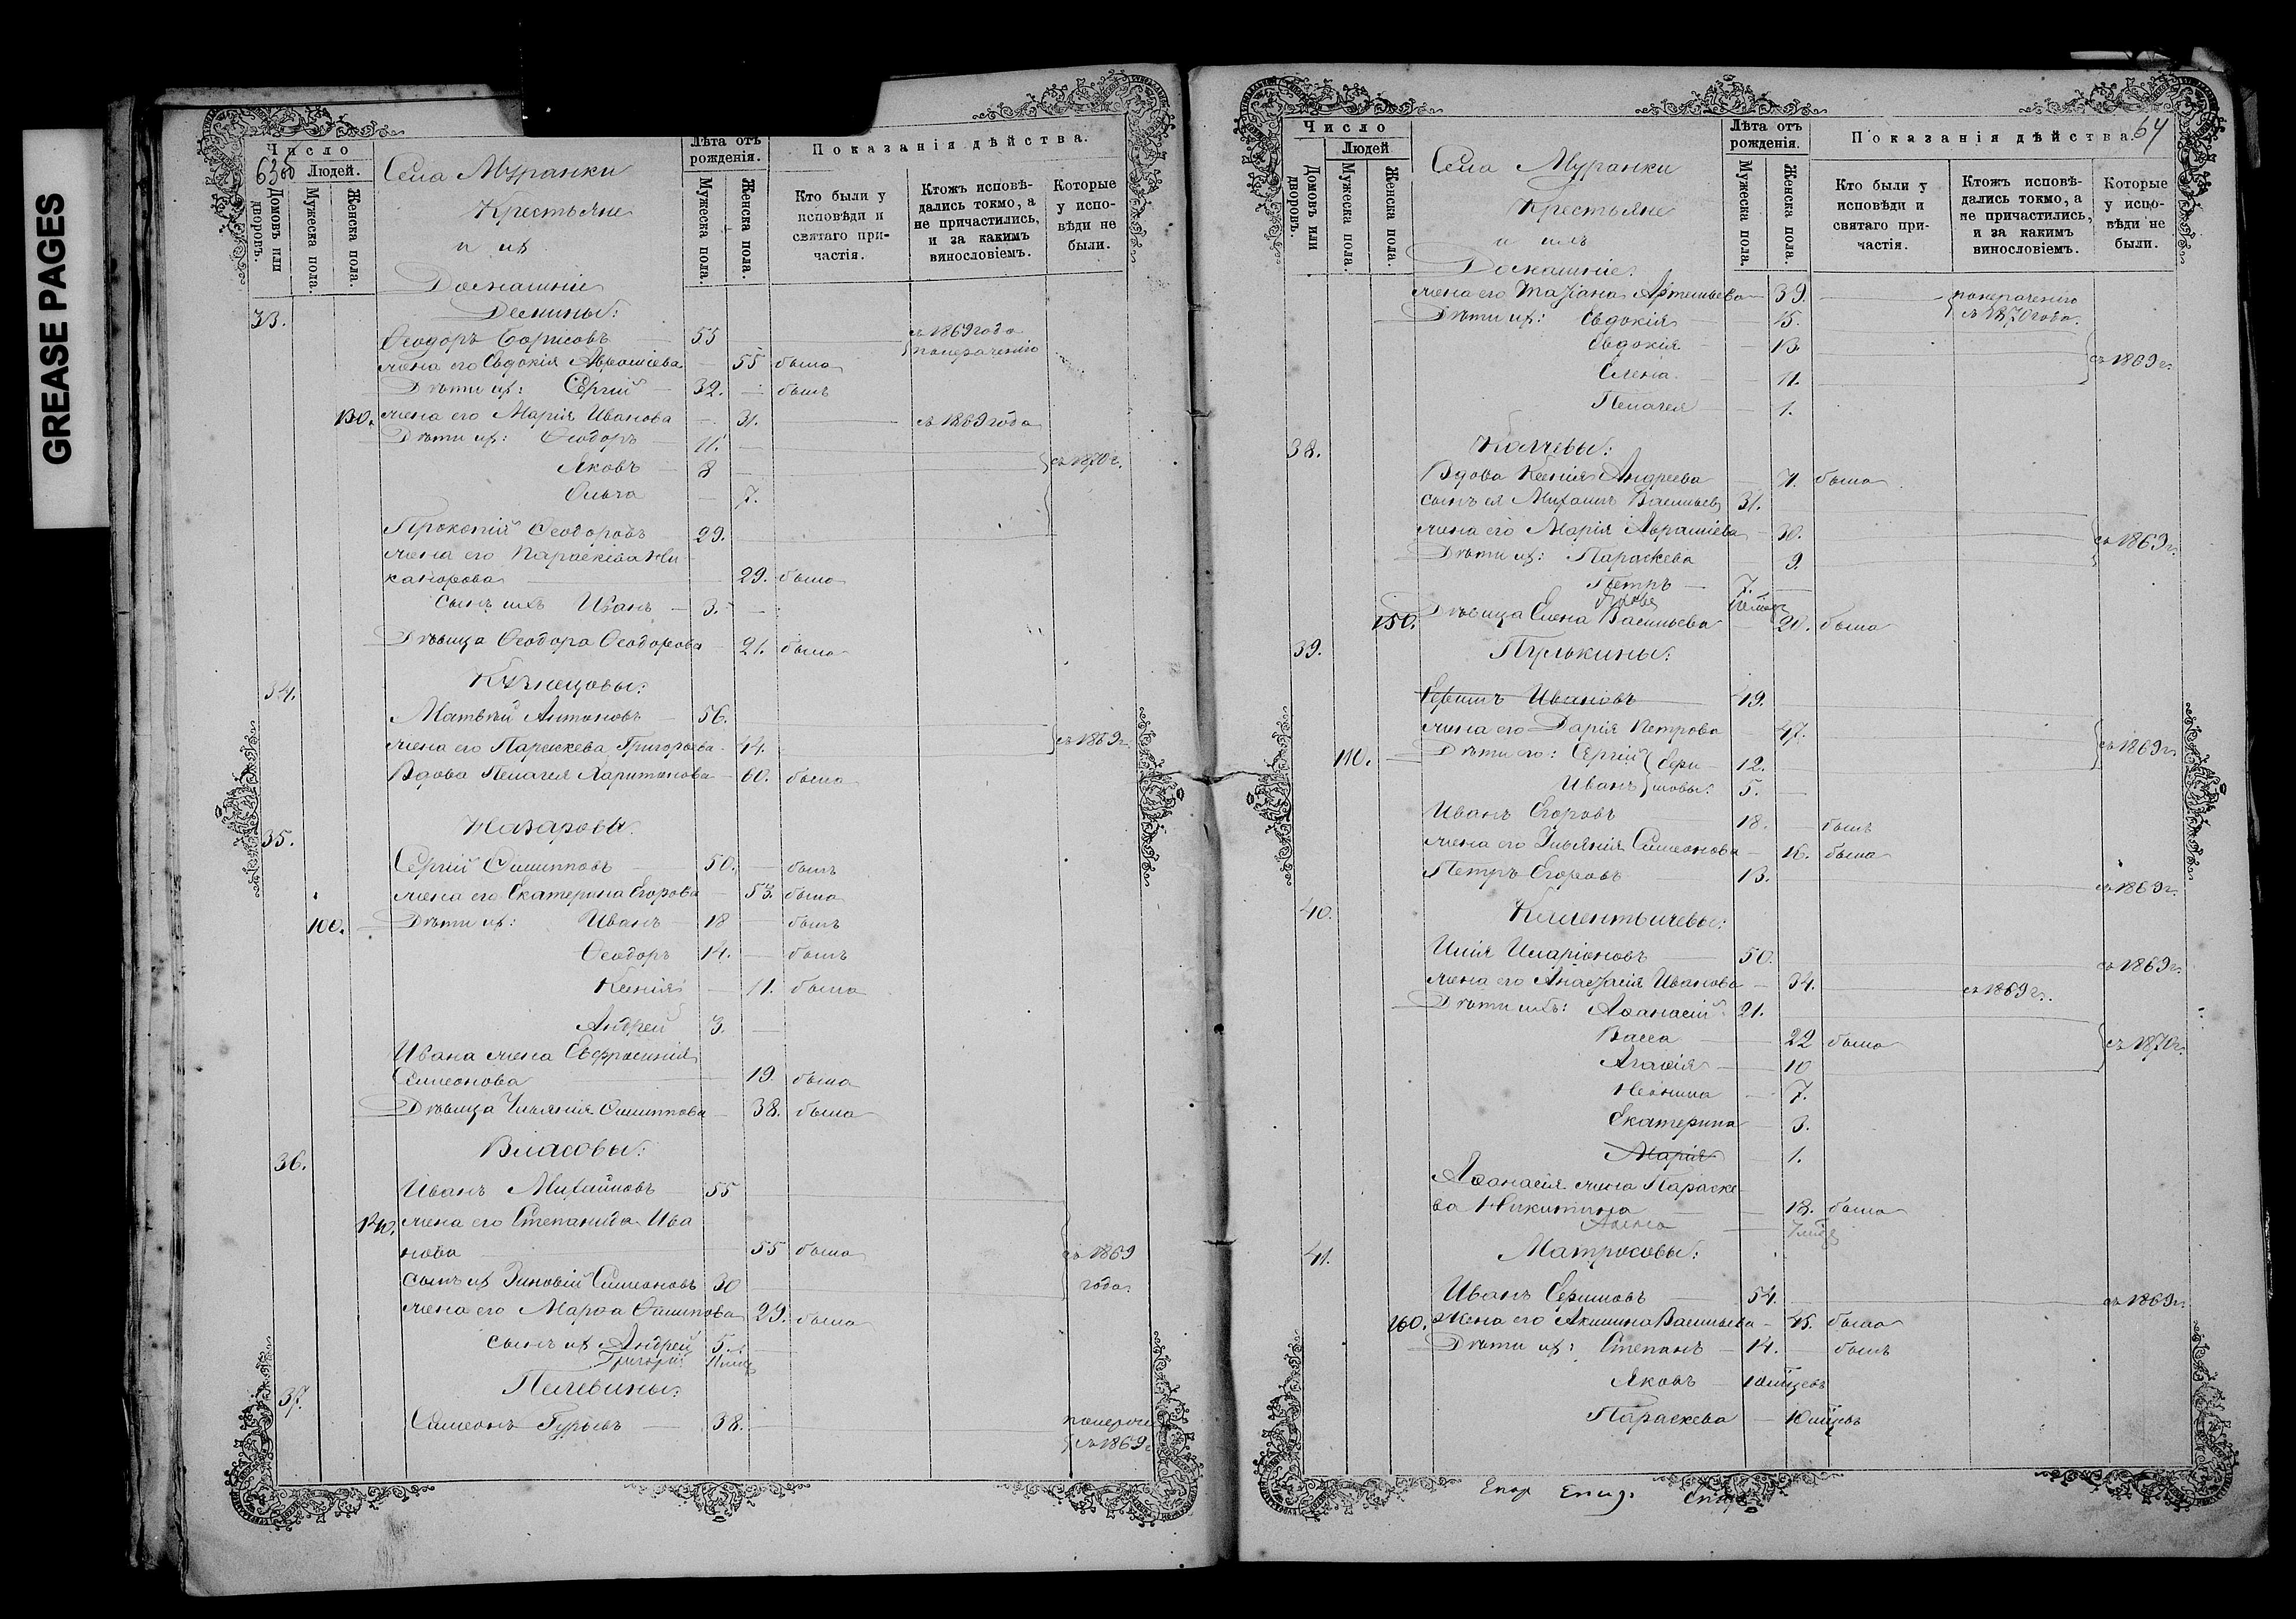 GREASE PAGES
Число
63об
Людей.
Домовъ или дворовъ.
Мужеска пола.
Женска пола.
Села Муранки
Крестьяне
и их
Домашніе
Лѣта отъ рожденія.
Мужеска пола.
Женска пола.
Показанія дѣйства.
Кто были у исповѣди и святаго причастія.
Ктожъ исповѣдались токмо, а не причастились, и за какимъ винословіемъ.
Которые у исповѣди не были.
33. Демины:
Ѳеодоръ Борисовъ 55 съ 1869 года
жена его Евдокія 55 была по нерачению
Дѣти их: Сергій 32. былъ
130. жена его Марія Иванова 31. съ 1869 года
Дѣти их: Ѳеодоръ 11.
Яковъ 8 съ 1870 г.
Ольга 7.
Прокопій Ѳеодоровъ 29.
жена его Парасківа Ни-
канорова 29. была
сынъ ихъ Иванъ 3.
Дѣвица Ѳеодора Ѳеодорова 21. была
34. Кузнецовы:
Матвѣй Антоновъ 56.
жена его Параскева Григорьева 44. съ 1869 г.
Вдова Пелагея Харитонова 60. была
35. Назаровы.
Сергій Филипповъ 50. былъ
жена его Екатерина Егорова 53. была
100. Дѣти их: Иванъ 18 былъ
Ѳеодоръ 14. былъ
Ксенія 11. была
Андрей 3.
Ивана жена Евфросинія
Симеонова 19. была
Дѣвица Ульянія Филиппова 38. была
36. Власовы:
Иванъ Михайловъ 55
140. жена его Степанида Ива
нова 55 была съ 1869
сынъ их Зиновій Симеоновъ 30 года
жена его Марѳа Филипова 29. была
сынъ их Андрей 5.
Григорій
37. Пелевины:
Симеонъ Гурьевъ 38. по нерачен
съ 1869 г
Число
Людей
Домовъ или дворовъ.
Мужеска пола.
Женска пола.
Села Муранки
Крестьяне
и ихъ
Домашніе:
Лѣта отъ рожденія.
Мужеска пола.
Женска пола.
Показанія дѣйства.
64
Кто были у исповѣди и святаго причастія.
Ктожъ исповѣдались токмо, а не причастились, и за какимъ винословіемъ.
Которые у исповѣди не были.
жена его Татіана Артемьева 39. по нерачению
Дѣти их: Евдокія 15. съ 1870 года.
Евдокія 13.
Елена 11. съ 1869 г.
Пелагея 1.
38.
Вдова Ксенія Андреева была
сынъ ея Михаилъ Васильев 31.
жена его Марія 30.
Дѣти их: Параскева 9. съ 1869 г.
Петръ 7.
150. Дѣвица Елена Васильева 20. была
39. Пулькины:
Ивановъ 49.
жена его Дарія Петрова 47.
110. Дѣти его: Сергій 12. съ 1869 г.
Иванъ 5.
Иванъ Егоровъ 18. былъ
жена его Ульянія Симеонова 16. была
Петръ Егоровъ 13. съ 1869 г.
40. Климентьичевы:
Илія Иларіоновъ 50. съ 1869 г.
жена его Анастасія Иванова 34. съ 1869 г.
Дѣти ихъ: Аѳанасій 21.
Васса 22 была съ 1870 г.
Агафія 10
Неонила 7.
Екатерина 3.
Марія 1.
Аѳанасія жена Параске-
ва Никитина 18. была
41. Матросовы:
Иванъ Ефимовъ 54. съ 1869 г.
160. Жена его Акилина Васильева 45. была
Дѣти их: Степанъ 14. былъ
Яковъ
Параскева